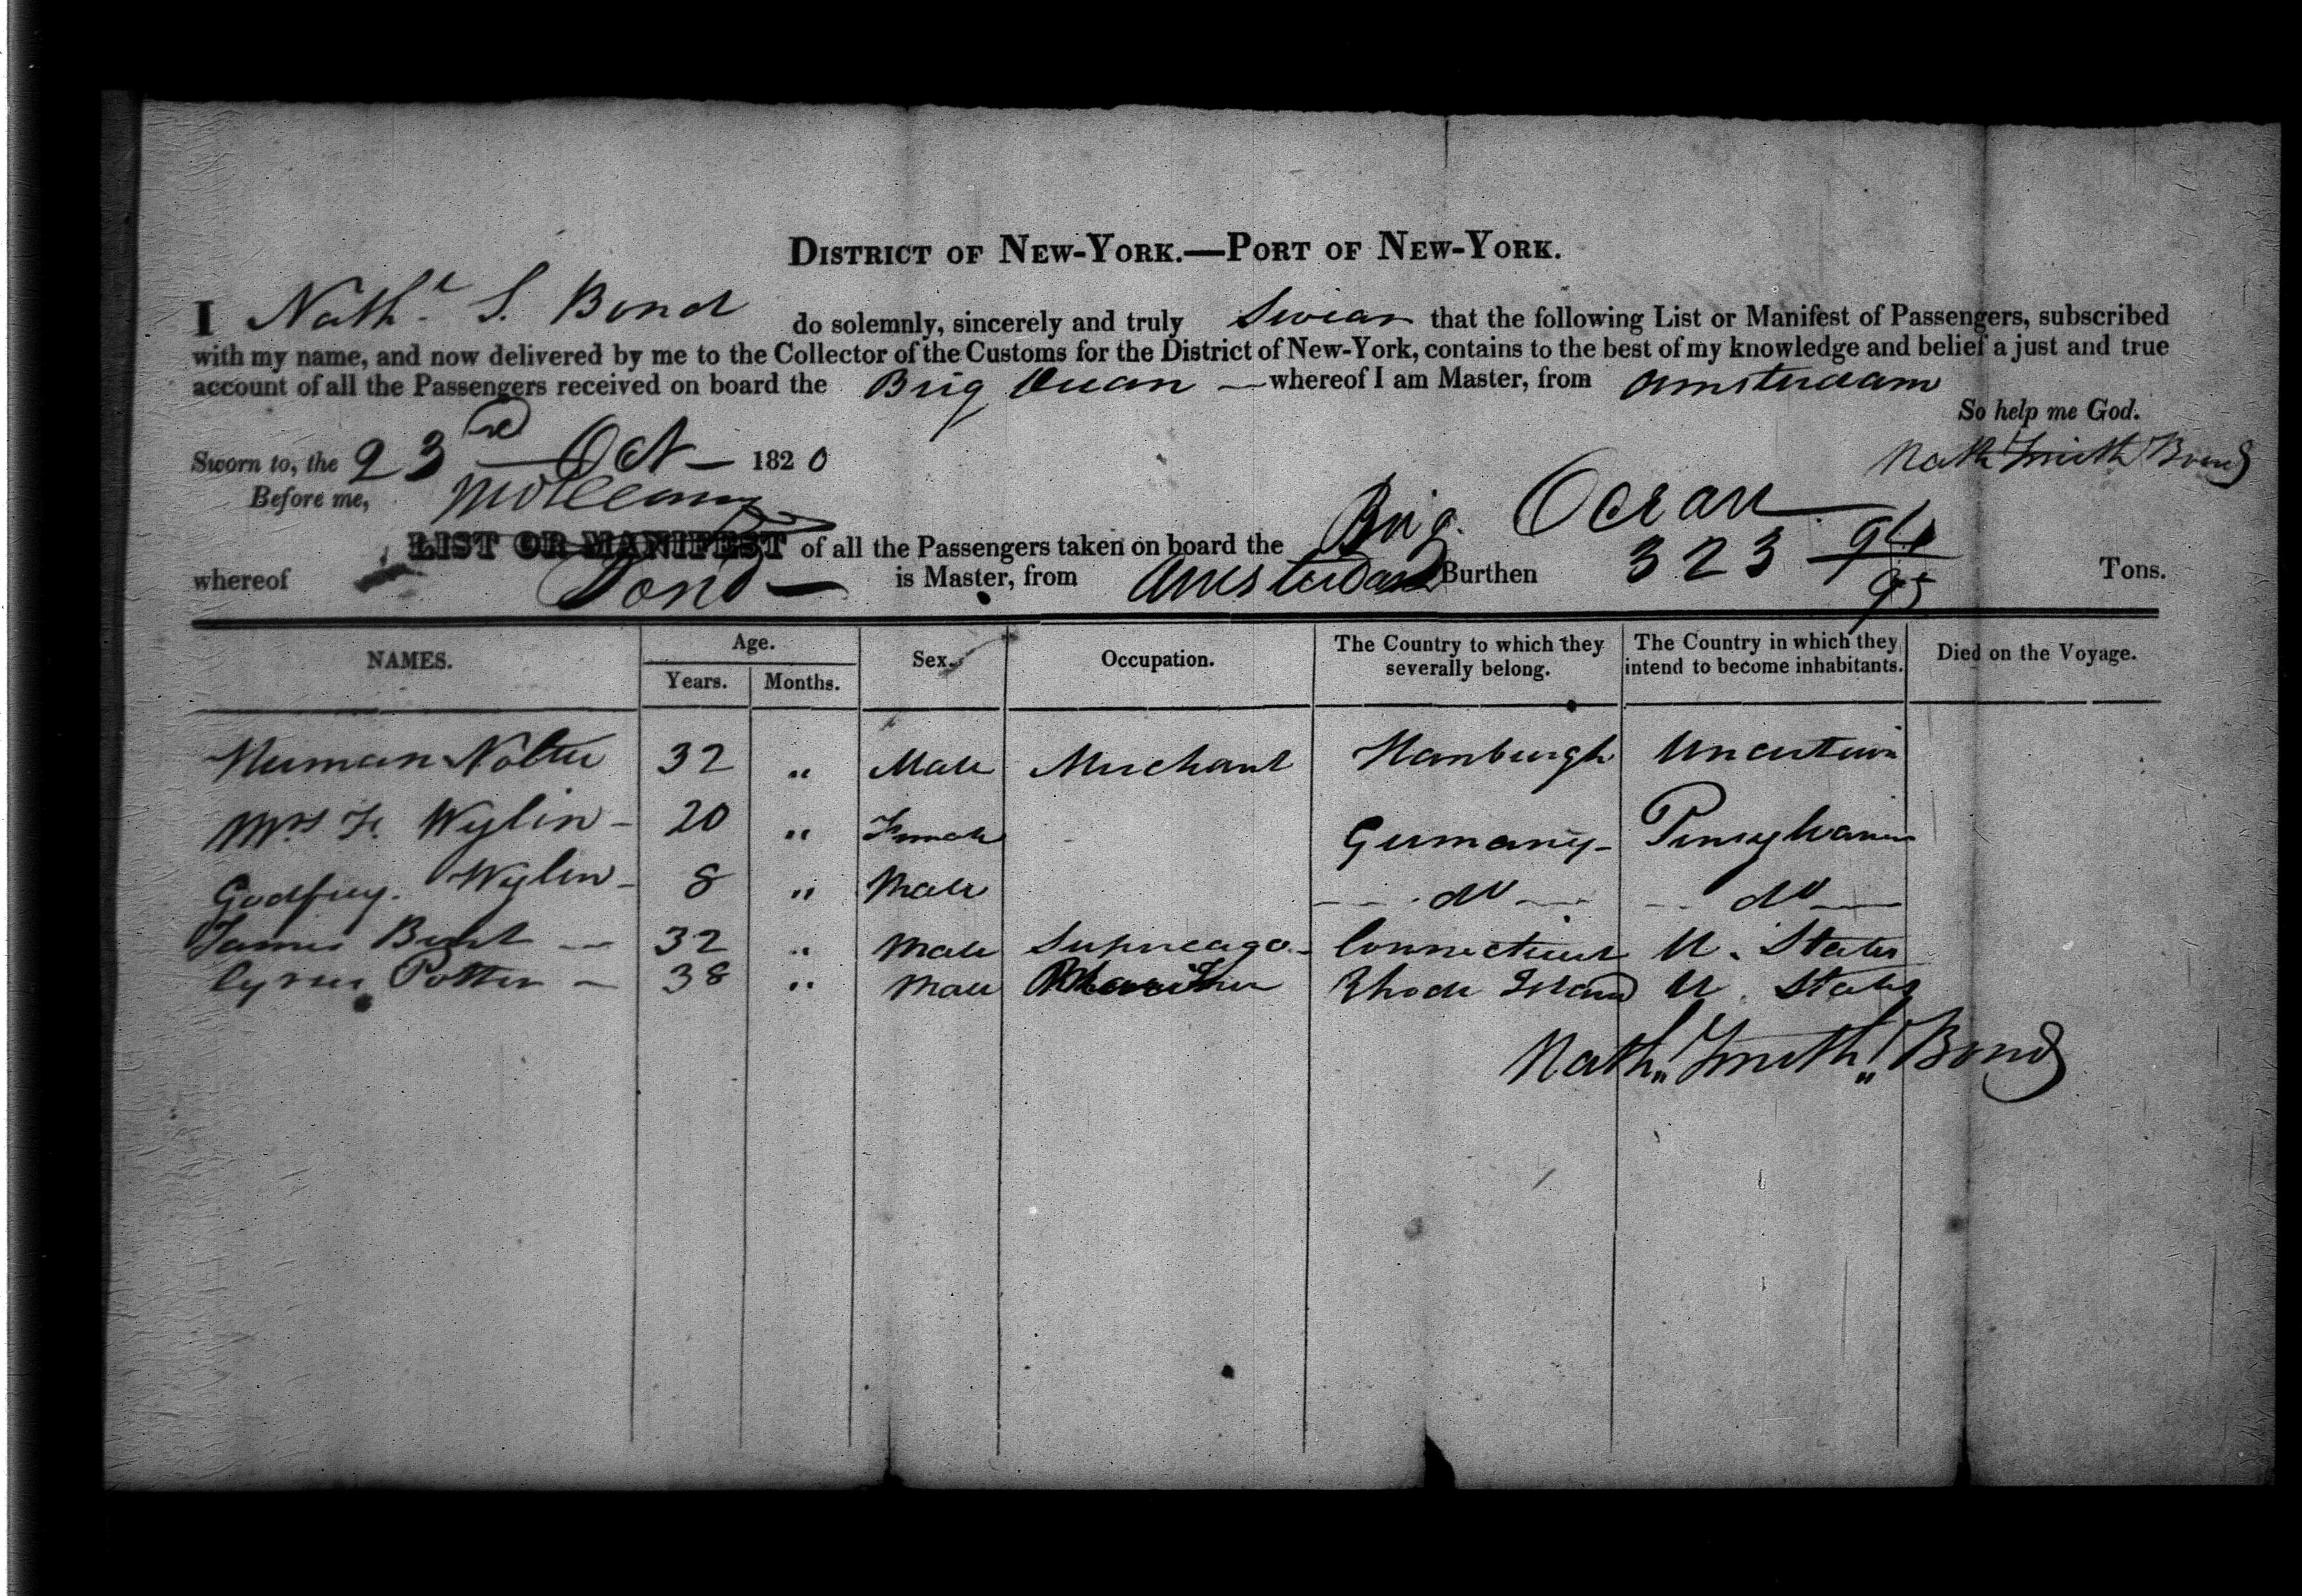 DISTRICT OF NEW-YORK.—PORT OF NEW-YORK.
I Nathl. S. Bond do solemnly, sincerely and truly Swear that the following List or Manifest of Passengers, subscribed
with my name, and now delivered by me to the Collector of the Customs for the District of New-York, contains to the best of my knowledge and belief a just and true
account of all the Passengers received on board the Brig Ocean — whereof I am Master, from Amsterdam
So help me God.
Sworn to, the 23rd Oct — 1820 Nath Smith Bond
Before me,
LIST OR MANIFEST of all the Passengers taken on board the Brig. Ocean
whereof Bond — is Master, from Amsterdam Burthen 323 94/95 Tons.
NAMES. Age. Years. Months. Sex. Occupation. The Country to which they severally belong. The Country in which they intend to become inhabitants. Died on the Voyage.
Herman Nolte 32 " Male Merchant Hamburgh Uncertain
Mrs F. Wylin - 20 " Female Germany - Pensylvania
Godfrey. Wylin - 8 " Male do do
James Bunt — 32 " Male Supercargo - Connecticut U. States
Cyrus Potter — 38 " Male Mariner Rhode Island U. States
Nath" Smith" Bond